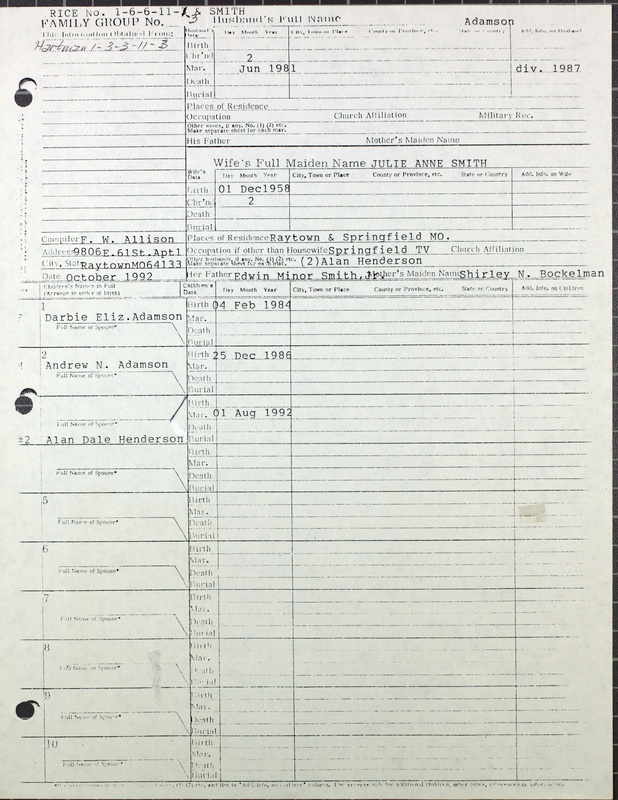 RICE No. 1-6-6-11-1 & SMITH
FAMILY GROUP No.
3
Husband's Full Name
Adamson
This Information Obtained From:
Hartman 1-3-3-11-3
Husband's Data
Day Month Year
City, Town or Place
County or Province, etc.
State or Country
Add. Info. on Husband
Birth
Chr'nd
2
Mar.
Jun 1981
div. 1987
Death
Burial
Places of Residence
Occupation
Church Affiliation
Military Rec.
Other wives, if any. No. (1) (2) etc.
Make separate sheet for each mar.
His Father
Mother's Maiden Name
Wife's Full Maiden Name JULIE ANNE SMITH
Wife's Data
Day Month Year
City, Town or Place
County or Province, etc.
State or Country
Add. Info. on Wife
Birth
01 Dec1958
Chr'nd
2
Death
Burial
Compiler F. W. Allison
Places of Residence Raytown & Springfield MO.
Address 9806E.61St.Apt1
Occupation if other than Housewife Springfield TV
Church Affiliation
City, State RaytownMO64133
Other husbands, if any. No. (1) (2) etc.
Make separate sheet for each mar.
(2)Alan Henderson
Date October 1992
Her Father Edwin Minor Smith,Jr.
Mother's Maiden Name Shirley N. Bockelman
Children's Names in Full
(Arrange in order of birth)
Children's Data
Day Month Year
City, Town or Place
County or Province, etc.
State or Country
Add. Info. on Children
1
Birth 04 Feb 1984
Darbie Eliz.Adamson
Mar.
Full Name of Spouse*
Death
Burial
2
Birth 25 Dec 1986
Andrew N. Adamson
Mar.
Full Name of Spouse*
Death
Burial
Birth
Mar. 01 Aug 1992
Full Name of Spouse*
Death
#2 Alan Dale Henderson
Burial
Birth
Mar.
Full Name of Spouse*
Death
Burial
5
Birth
Mar.
Full Name of Spouse*
Death
Burial
6
Birth
Mar.
Full Name of Spouse*
Death
Burial
7
Birth
Mar.
Full Name of Spouse*
Death
Burial
8
Birth
Mar.
Full Name of Spouse*
Death
Burial
9
Birth
Mar.
Full Name of Spouse*
Death
Burial
10
Birth
Mar.
Full Name of Spouse*
Death
Burial